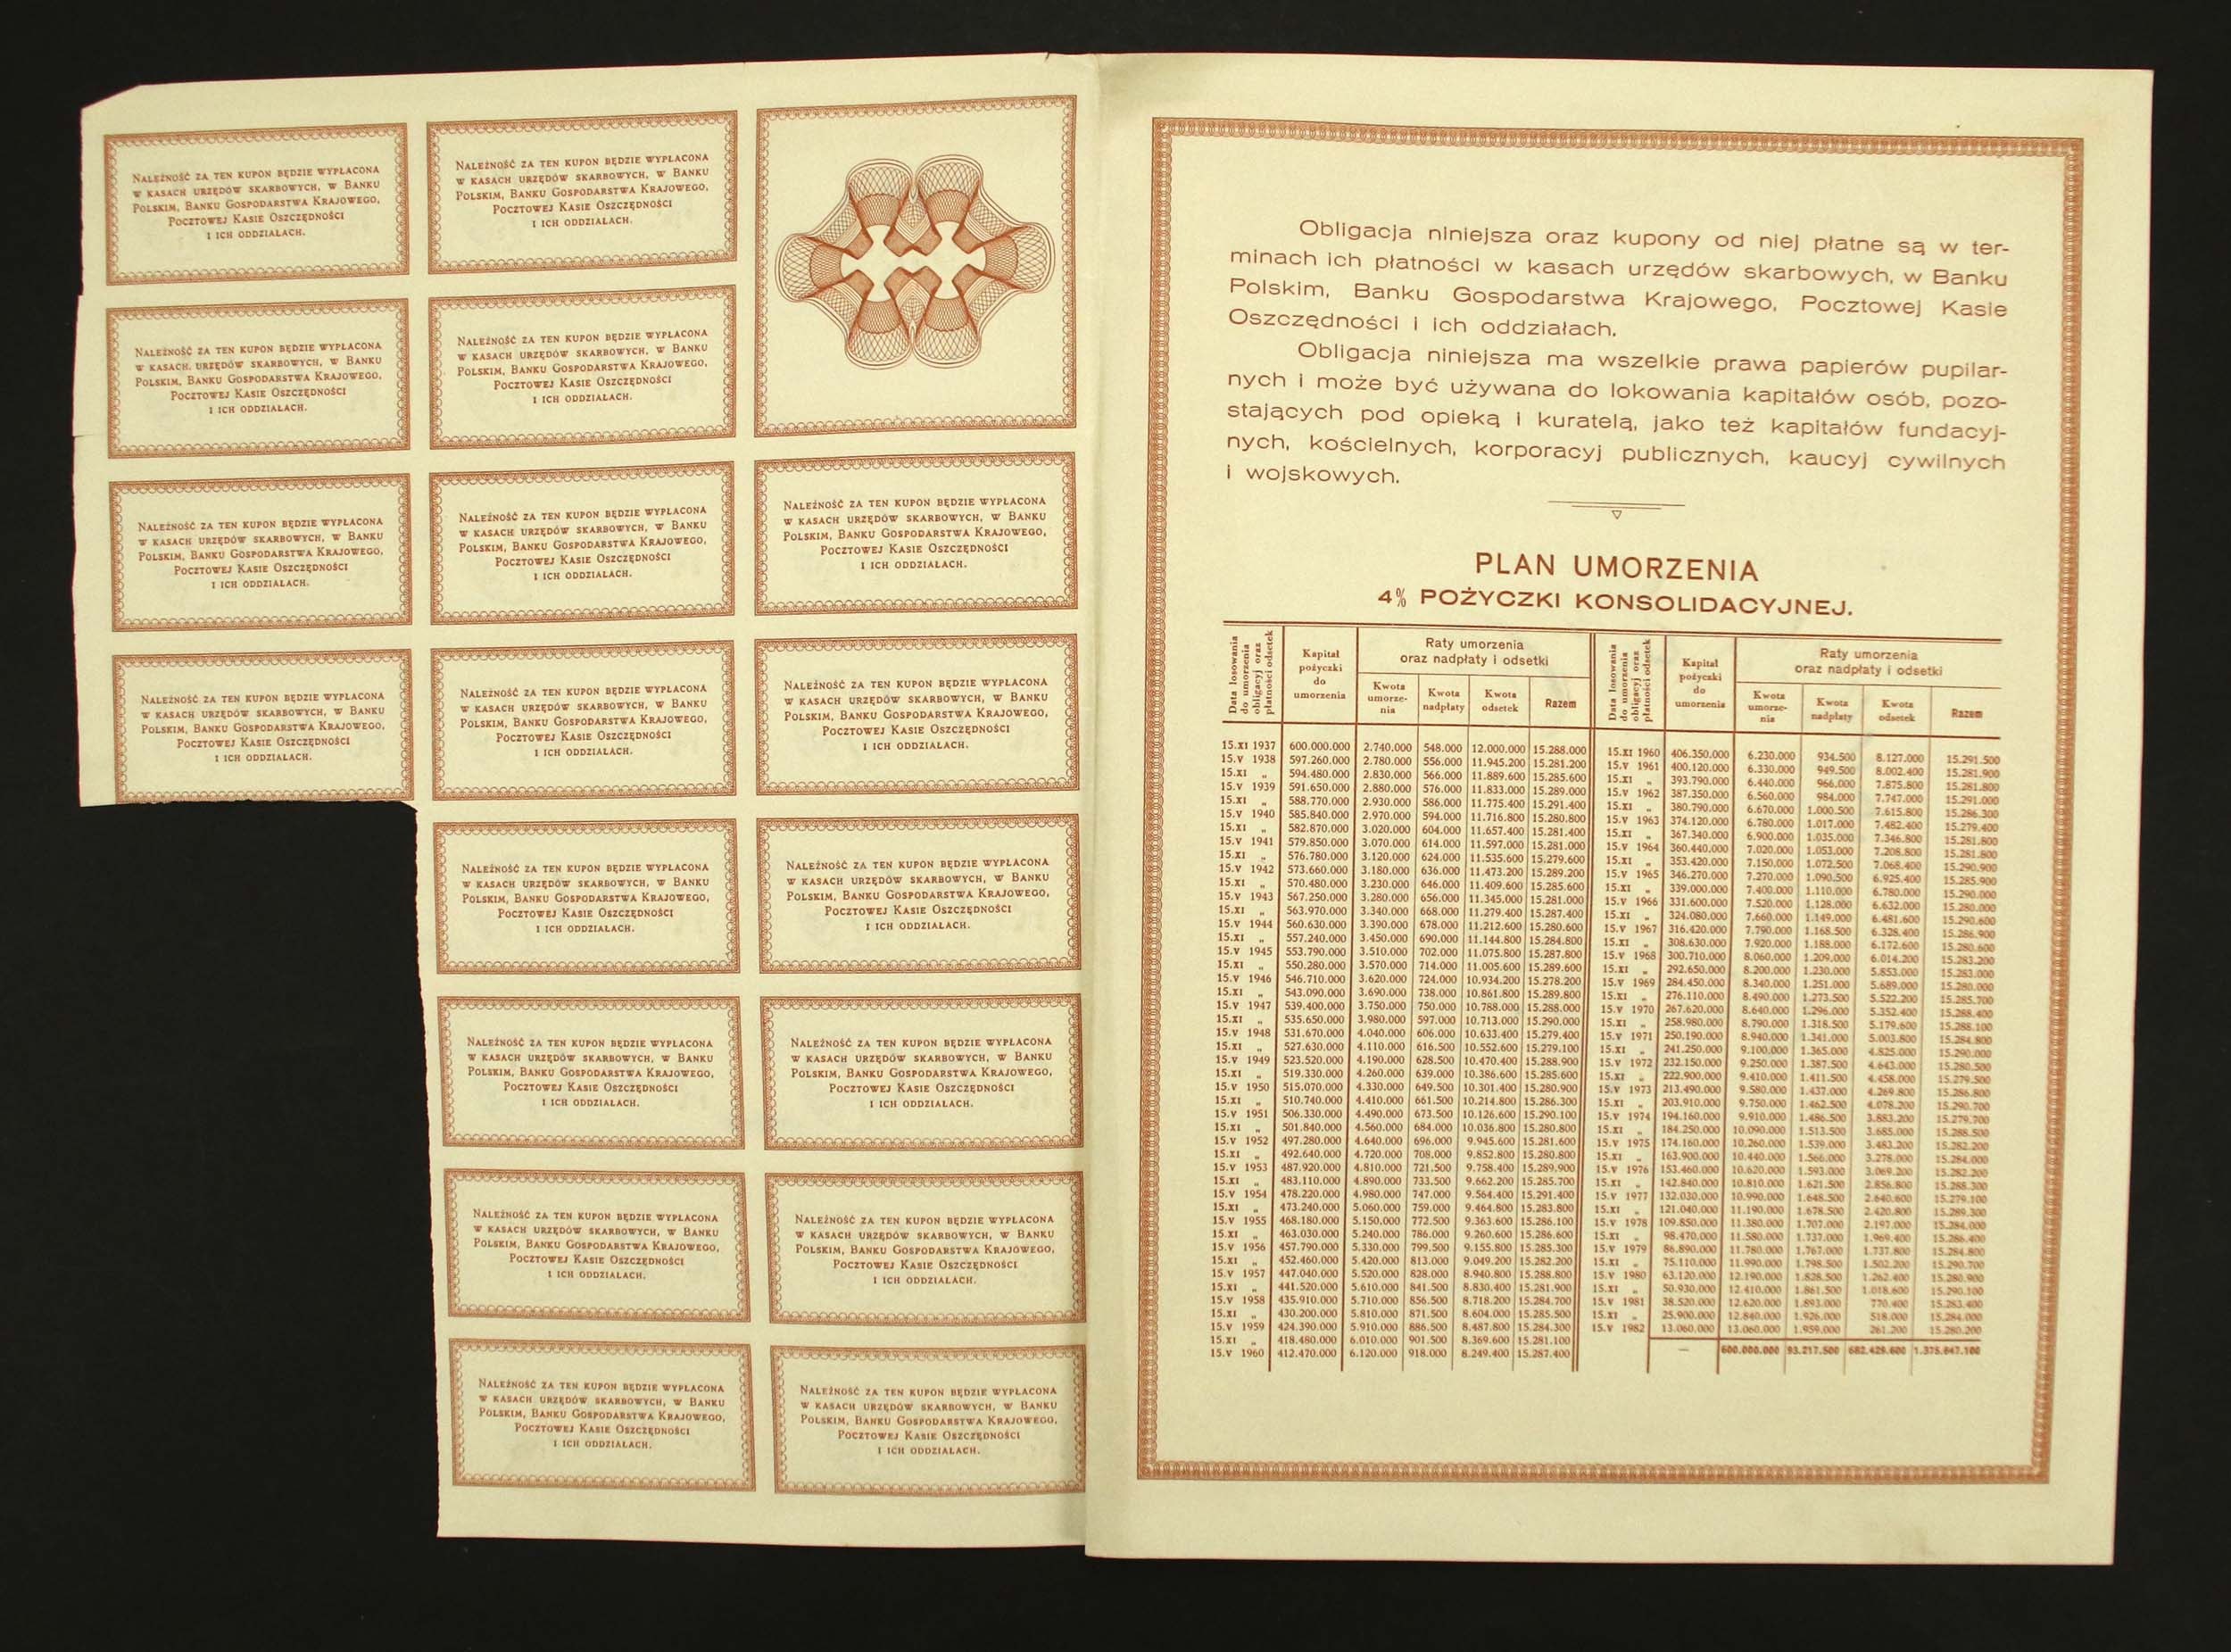 NALEŻNOŚĆ ZA TEN KUPON BĘDZIE WYPŁACONA
W KASACH URZĘDÓW SKARBOWYCH, W BANKU
POLSKIM, BANKU GOSPODARSTWA KRAJOWEGO,
POCZTOWEJ KASIE OSZCZĘDNOŚCI
I ICH ODDZIAŁACH.
NALEŻNOŚĆ ZA TEN KUPON BĘDZIE WYPŁACONA
W KASACH URZĘDÓW SKARBOWYCH, W BANKU
POLSKIM, BANKU GOSPODARSTWA KRAJOWEGO,
POCZTOWEJ KASIE OSZCZĘDNOŚCI
I ICH ODDZIAŁACH.
NALEŻNOŚĆ ZA TEN KUPON BĘDZIE WYPŁACONA
W KASACH, URZĘDÓW SKARBOWYCH, W BANKU
POLSKIM, BANKU GOSPODARSTWA KRAJOWEGO,
POCZTOWEJ KASIE OSZCZĘDNOŚCI
I ICH ODDZIAŁACH.
NALEŻNOŚĆ ZA TEN KUPON BĘDZIE WYPŁACONA
W KASACH URZĘDÓW SKARBOWYCH, W BANKU
POLSKIM, BANKU GOSPODARSTWA KRAJOWEGO,
POCZTOWEJ KASIE OSZCZĘDNOŚCI
I ICH ODDZIAŁACH.
NALEŻNOŚĆ ZA TEN KUPON BĘDZIE WYPŁACONA
W KASACH URZĘDÓW SKARBOWYCH, W BANKU
POLSKIM, BANKU GOSPODARSTWA KRAJOWEGO,
POCZTOWEJ KASIE OSZCZĘDNOŚCI
I ICH ODDZIAŁACH.
NALEŻNOŚĆ ZA TEN KUPON BĘDZIE WYPŁACONA
W KASACH URZĘDÓW SKARBOWYCH, W BANKU
POLSKIM, BANKU GOSPODARSTWA KRAJOWEGO,
POCZTOWEJ KASIE OSZCZĘDNOŚCI
I ICH ODDZIAŁACH.
NALEŻNOŚĆ ZA TEN KUPON BĘDZIE WYPŁACONA
W KASACH URZĘDÓW SKARBOWYCH, W BANKU
POLSKIM, BANKU GOSPODARSTWA KRAJOWEGO,
POCZTOWEJ KASIE OSZCZĘDNOŚCI
I ICH ODDZIAŁACH.
NALEŻNOŚĆ ZA TEN KUPON BĘDZIE WYPŁACONA
W KASACH URZĘDÓW SKARBOWYCH, W BANKU
POLSKIM, BANKU GOSPODARSTWA KRAJOWEGO,
POCZTOWEJ KASIE OSZCZĘDNOŚCI
I ICH ODDZIAŁACH.
NALEŻNOŚĆ ZA TEN KUPON BĘDZIE WYPŁACONA
W KASACH URZĘDÓW SKARBOWYCH, W BANKU
POLSKIM, BANKU GOSPODARSTWA KRAJOWEGO,
POCZTOWEJ KASIE OSZCZĘDNOŚCI
I ICH ODDZIAŁACH.
NALEŻNOŚĆ ZA TEN KUPON BĘDZIE WYPŁACONA
W KASACH URZĘDÓW SKARBOWYCH, W BANKU
POLSKIM, BANKU GOSPODARSTWA KRAJOWEGO,
POCZTOWEJ KASIE OSZCZĘDNOŚCI
I ICH ODDZIAŁACH.
NALEŻNOŚĆ ZA TEN KUPON BĘDZIE WYPŁACONA
W KASACH URZĘDÓW SKARBOWYCH, W BANKU
POLSKIM, BANKU GOSPODARSTWA KRAJOWEGO,
POCZTOWEJ KASIE OSZCZĘDNOŚCI
I ICH ODDZIAŁACH.
NALEŻNOŚĆ ZA TEN KUPON BĘDZIE WYPŁACONA
W KASACH URZĘDÓW SKARBOWYCH, W BANKU
POLSKIM, BANKU GOSPODARSTWA KRAJOWEGO,
POCZTOWEJ KASIE OSZCZĘDNOŚCI
I ICH ODDZIAŁACH.
NALEŻNOŚĆ ZA TEN KUPON BĘDZIE WYPŁACONA
W KASACH URZĘDÓW SKARBOWYCH, W BANKU
POLSKIM, BANKU GOSPODARSTWA KRAJOWEGO,
POCZTOWEJ KASIE OSZCZĘDNOŚCI
I ICH ODDZIAŁACH.
NALEŻNOŚĆ ZA TEN KUPON BĘDZIE WYPŁACONA
W KASACH URZĘDÓW SKARBOWYCH, W BANKU
POLSKIM, BANKU GOSPODARSTWA KRAJOWEGO,
POCZTOWEJ KASIE OSZCZĘDNOŚCI
I ICH ODDZIAŁACH.
NALEŻNOŚĆ ZA TEN KUPON BĘDZIE WYPŁACONA
W KASACH URZĘDÓW SKARBOWYCH, W BANKU
POLSKIM, BANKU GOSPODARSTWA KRAJOWEGO,
POCZTOWEJ KASIE OSZCZĘDNOŚCI
I ICH ODDZIAŁACH.
NALEŻNOŚĆ ZA TEN KUPON BĘDZIE WYPŁACONA
W KASACH URZĘDÓW SKARBOWYCH, W BANKU
POLSKIM, BANKU GOSPODARSTWA KRAJOWEGO,
POCZTOWEJ KASIE OSZCZĘDNOŚCI
I ICH ODDZIAŁACH.
NALEŻNOŚĆ ZA TEN KUPON BĘDZIE WYPŁACONA
W KASACH URZĘDÓW SKARBOWYCH, W BANKU
POLSKIM, BANKU GOSPODARSTWA KRAJOWEGO,
POCZTOWEJ KASIE OSZCZĘDNOŚCI
I ICH ODDZIAŁACH.
NALEŻNOŚĆ ZA TEN KUPON BĘDZIE WYPŁACONA
W KASACH URZĘDÓW SKARBOWYCH, W BANKU
POLSKIM, BANKU GOSPODARSTWA KRAJOWEGO,
POCZTOWEJ KASIE OSZCZĘDNOŚCI
I ICH ODDZIAŁACH.
Obligacja niniejsza oraz kupony od niej płatne są w ter-
minach ich płatności w kasach urzędów skarbowych, w Banku
Polskim, Banku Gospodarstwa Krajowego, Pocztowej Kasie
Oszczędności i ich oddziałach.
Obligacja niniejsza ma wszelkie prawa papierów pupilar-
nych i może być używana do lokowania kapitałów osób, pozo-
stających pod opieką i kuratelą, jako też kapitałów fundacyj-
nych, kościelnych, korporacyj publicznych, kaucyj cywilnych
i wojskowych.
PLAN UMORZENIA
4% POŻYCZKI KONSOLIDACYJNEJ.
Data losowania
do umorzenia
obligacyj oraz
płatności odsetek
Kapitał
pożyczki
do
umorzenia
Raty umorzenia
oraz nadpłaty i odsetki
Kwota
umorze-
nia
Kwota
nadpłaty
Kwota
odsetek
Razem
15.XI 1937 600.000.000 2.740.000 548.000 12.000.000 15.288.000
15.V 1938 597.260.000 2.780.000 556.000 11.945.200 15.281.200
15.XI „ 594.480.000 2.830.000 566.000 11.889.600 15.285.600
15.V 1939 591.650.000 2.880.000 576.000 11.833.000 15.289.000
15.XI „ 588.770.000 2.930.000 586.000 11.775.400 15.291.400
15.V 1940 585.840.000 2.970.000 594.000 11.716.800 15.280.800
15.XI „ 582.870.000 3.020.000 604.000 11.657.400 15.281.400
15.V 1941 579.850.000 3.070.000 614.000 11.597.000 15.281.000
15.XI „ 576.780.000 3.120.000 624.000 11.535.600 15.279.600
15.V 1942 573.660.000 3.180.000 636.000 11.473.200 15.289.200
15.XI „ 570.480.000 3.230.000 646.000 11.409.600 15.285.600
15.V 1943 567.250.000 3.280.000 656.000 11.345.000 15.281.000
15.XI „ 563.970.000 3.340.000 668.000 11.279.400 15.287.400
15.V 1944 560.630.000 3.390.000 678.000 11.212.600 15.280.600
15.XI „ 557.240.000 3.450.000 690.000 11.144.800 15.284.800
15.V 1945 553.790.000 3.510.000 702.000 11.075.800 15.287.800
15.XI „ 550.280.000 3.570.000 714.000 11.005.600 15.289.600
15.V 1946 546.710.000 3.620.000 724.000 10.934.200 15.278.200
15.XI „ 543.090.000 3.690.000 738.000 10.861.800 15.289.800
15.V 1947 539.400.000 3.750.000 750.000 10.788.000 15.288.000
15.XI „ 535.650.000 3.980.000 597.000 10.713.000 15.290.000
15.V 1948 531.670.000 4.040.000 606.000 10.633.400 15.279.400
15.XI „ 527.630.000 4.110.000 616.500 10.552.600 15.279.100
15.V 1949 523.520.000 4.190.000 628.500 10.470.400 15.288.900
15.XI „ 519.330.000 4.260.000 639.000 10.386.600 15.285.600
15.V 1950 515.070.000 4.330.000 649.500 10.301.400 15.280.900
15.XI „ 510.740.000 4.410.000 661.500 10.214.800 15.286.300
15.V 1951 506.330.000 4.490.000 673.500 10.126.600 15.290.100
15.XI „ 501.840.000 4.560.000 684.000 10.036.800 15.280.800
15.V 1952 497.280.000 4.640.000 696.000 9.945.600 15.281.600
15.XI „ 492.640.000 4.720.000 708.000 9.852.800 15.280.800
15.V 1953 487.920.000 4.810.000 721.500 9.758.400 15.289.900
15.XI „ 483.110.000 4.890.000 733.500 9.662.200 15.285.700
15.V 1954 478.220.000 4.980.000 747.000 9.564.400 15.291.400
15.XI „ 473.240.000 5.060.000 759.000 9.464.800 15.283.800
15.V 1955 468.180.000 5.150.000 772.500 9.363.600 15.286.100
15.XI „ 463.030.000 5.240.000 786.000 9.260.600 15.286.600
15.V 1956 457.790.000 5.330.000 799.500 9.155.800 15.285.300
15.XI „ 452.460.000 5.420.000 813.000 9.049.200 15.282.200
15.V 1957 447.040.000 5.520.000 828.000 8.940.800 15.288.800
15.XI „ 441.520.000 5.610.000 841.500 8.830.400 15.281.900
15.V 1958 435.910.000 5.710.000 856.500 8.718.200 15.284.700
15.XI „ 430.200.000 5.810.000 871.500 8.604.000 15.285.500
15.V 1959 424.390.000 5.910.000 886.500 8.487.800 15.284.300
15.XI „ 418.480.000 6.010.000 901.500 8.369.600 15.281.100
15.V 1960 412.470.000 6.120.000 918.000 8.249.400 15.287.400
Data losowania
do umorzenia
obligacyj oraz
płatności odsetek
Kapitał
pożyczki
do
umorzenia
Raty umorzenia
oraz nadpłaty i odsetki
Kwota
umorze-
nia
Kwota
nadpłaty
Kwota
odsetek
Razem
15.XI 1960 406.350.000 6.230.000 934.500 8.127.000 15.291.500
15.V 1961 400.120.000 6.330.000 949.500 8.002.400 15.281.900
15.XI „ 393.790.000 6.440.000 966.000 7.875.800 15.281.800
15.V 1962 387.350.000 6.560.000 984.000 7.747.000 15.291.000
15.XI „ 380.790.000 6.670.000 1.000.500 7.615.800 15.286.300
15.V 1963 374.120.000 6.780.000 1.017.000 7.482.400 15.279.400
15.XI „ 367.340.000 6.900.000 1.035.000 7.346.800 15.281.800
15.V 1964 360.440.000 7.020.000 1.053.000 7.208.800 15.281.800
15.XI „ 353.420.000 7.150.000 1.072.500 7.068.400 15.290.900
15.V 1965 346.270.000 7.270.000 1.090.500 6.925.400 15.285.900
15.XI „ 339.000.000 7.400.000 1.110.000 6.780.000 15.290.000
15.V 1966 331.600.000 7.520.000 1.128.000 6.632.000 15.280.000
15.XI „ 324.080.000 7.660.000 1.149.000 6.481.600 15.290.600
15.V 1967 316.420.000 7.790.000 1.168.500 6.328.400 15.286.900
15.XI „ 308.630.000 7.920.000 1.188.000 6.172.600 15.280.600
15.V 1968 300.710.000 8.060.000 1.209.000 6.014.200 15.283.200
15.XI „ 292.650.000 8.200.000 1.230.000 5.853.000 15.283.000
15.V 1969 284.450.000 8.340.000 1.251.000 5.689.000 15.280.000
15.XI „ 276.110.000 8.490.000 1.273.500 5.522.200 15.285.700
15.V 1970 267.620.000 8.640.000 1.296.000 5.352.400 15.288.400
15.XI „ 258.980.000 8.790.000 1.318.500 5.179.600 15.288.100
15.V 1971 250.190.000 8.940.000 1.341.000 5.003.800 15.284.800
15.XI „ 241.250.000 9.100.000 1.365.000 4.825.000 15.290.000
15.V 1972 232.150.000 9.250.000 1.387.500 4.643.000 15.280.500
15.XI „ 222.900.000 9.410.000 1.411.500 4.458.000 15.279.500
15.V 1973 213.490.000 9.580.000 1.437.000 4.269.800 15.286.800
15.XI „ 203.910.000 9.750.000 1.462.500 4.078.200 15.290.700
15.V 1974 194.160.000 9.910.000 1.486.500 3.883.200 15.279.700
15.XI „ 184.250.000 10.090.000 1.513.500 3.685.000 15.288.500
15.V 1975 174.160.000 10.260.000 1.539.000 3.483.200 15.282.200
15.XI „ 163.900.000 10.440.000 1.566.000 3.278.000 15.284.000
15.V 1976 153.460.000 10.620.000 1.593.000 3.069.200 15.282.200
15.XI „ 142.840.000 10.810.000 1.621.500 2.856.800 15.288.300
15.V 1977 132.030.000 10.990.000 1.648.500 2.640.600 15.279.100
15.XI „ 121.040.000 11.190.000 1.678.500 2.420.800 15.289.300
15.V 1978 109.850.000 11.380.000 1.707.000 2.197.000 15.284.000
15.XI „ 98.470.000 11.580.000 1.737.000 1.969.400 15.286.400
15.V 1979 86.890.000 11.780.000 1.767.000 1.737.800 15.284.800
15.XI „ 75.110.000 11.990.000 1.798.500 1.502.200 15.290.700
15.V 1980 63.120.000 12.190.000 1.828.500 1.262.400 15.280.900
15.XI „ 50.930.000 12.410.000 1.861.500 1.018.600 15.290.100
15.V 1981 38.520.000 12.620.000 1.893.000 770.400 15.283.400
15.XI „ 25.900.000 12.840.000 1.926.000 518.000 15.284.000
15.V 1982 13.060.000 13.060.000 1.959.000 261.200 15.280.200
— 600.000.000 93.217.500 682.429.600 1.375.647.100